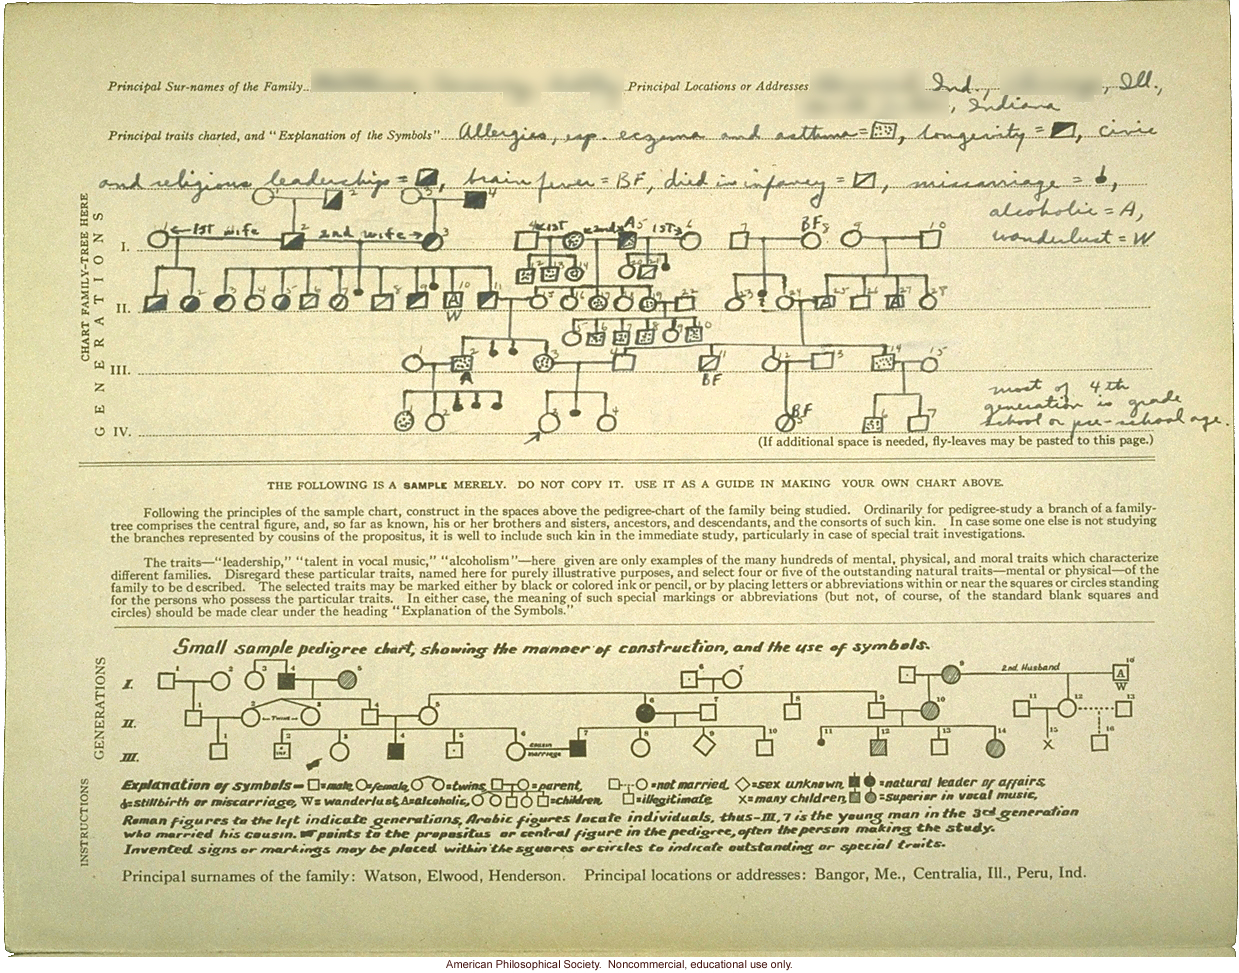 Principal Sur-names of the Family.. Principal Locations or Addresses Ind., , Ill.,
, Indiana
Principal traits charted, and "Explanation of the Symbols".. Allergies, esp. eczema and asthma= , longevity = , civic
and religious leadership = , brain fever = BF, died in infancy = , miscarriage = ,
alcoholic = A,
wanderlust = W
CHART FAMILY-TREE HERE
GENERATIONS
1st wife 2nd wife 1st 2nd A 1st BF
I.
A A
W
II.
III.
A BF
most of 4th
generation is grade
school or pre-school age.
BF
IV.
(If additional space is needed, fly-leaves may be pasted to this page.)
THE FOLLOWING IS A SAMPLE MERELY. DO NOT COPY IT. USE IT AS A GUIDE IN MAKING YOUR OWN CHART ABOVE.
Following the principles of the sample chart, construct in the spaces above the pedigree-chart of the family being studied. Ordinarily for pedigree-study a branch of a family-
tree comprises the central figure, and, so far as known, his or her brothers and sisters, ancestors, and descendants, and the consorts of such kin. In case some one else is not studying
the branches represented by cousins of the propositus, it is well to include such kin in the immediate study, particularly in case of special trait investigations.
The traits—"leadership," "talent in vocal music," "alcoholism"—here given are only examples of the many hundreds of mental, physical, and moral traits which characterize
different families. Disregard these particular traits, named here for purely illustrative purposes, and select four or five of the outstanding natural traits—mental or physical—of the
family to be described. The selected traits may be marked either by black or colored ink or pencil, or by placing letters or abbreviations within or near the squares or circles standing
for the persons who possess the particular traits. In either case, the meaning of such special markings or abbreviations (but not, of course, of the standard blank squares and
circles) should be made clear under the heading "Explanation of the Symbols."
Small sample pedigree chart, showing the manner of construction, and the use of symbols.
GENERATIONS
I. 1 2 3 4 5 6 7 9 2nd Husband 10 A
W
II. 1 2 Twins 3 4 5 6 7 8 9 10 11 12 13
III. 1 2 3 4 5 6 cousin marriage 7 8 9 10 11 12 13 14 15 X 16
INSTRUCTIONS
Explanation of symbols— =male, =female, =twins, =parent, =not married, =sex unknown, =natural leader of affairs,
=stillbirth or miscarriage, W=wanderlust, A=alcoholic, =children, =illegitimate, X=many children, =Superior in vocal music,
Roman figures to the left indicate generations, Arabic figures locate individuals, thus—III, 7 is the young man in the 3rd generation
who married his cousin. points to the propositus or central figure in the pedigree, often the person making the study.
Invented signs or markings may be placed within the squares or circles to indicate outstanding or special traits.
Principal surnames of the family: Watson, Elwood, Henderson. Principal locations or addresses: Bangor, Me., Centralia, Ill., Peru, Ind.
American Philosophical Society. Noncommercial, educational use only.